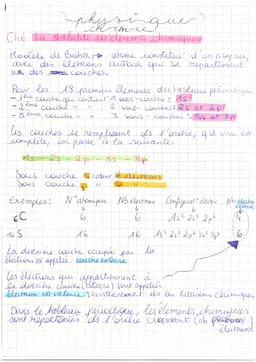 physique
chimie
Ch6 La stabilité des éléments chimiques
Modèle de Bohr, atome constitué d'un noyau,
avec des électrons autour qui se répartissent
sur des couches.
Pour les 18 premiers éléments du tableau périodique
- 1ère couche qui contient 1 sous-couche : 1s
- 2ème couche " " 2 sous-couches : 2s et 2p
- 3ème couche " " 3 sous-couches : 3s et 3p
Les couches se remplissent de l'ordre, qd une est
complète, on passe à la suivante.
1s - 2s - 2p - 3s - 3p
Sous couche s 2 électrons
Sous couche p 6 "
Exemples : N° atomique Nb électrons Configurat° électr Nb électrons
6C 6 6 1s² 2s² 2p² 4
16S 16 16 1s² 2s² 2p⁶ 3s² 3p⁴ 6
La dernière couche occupée par les
électrons est appelée : couche externe
Les électrons qui appartiennent à
la dernière couche (externe) sont appelés
électron de valence. Ils interviennent ds les liaisons chimiques
Dans le tableau périodique, les éléments chimiques
sont répertoriés de l'ordre croissant (nb
élément